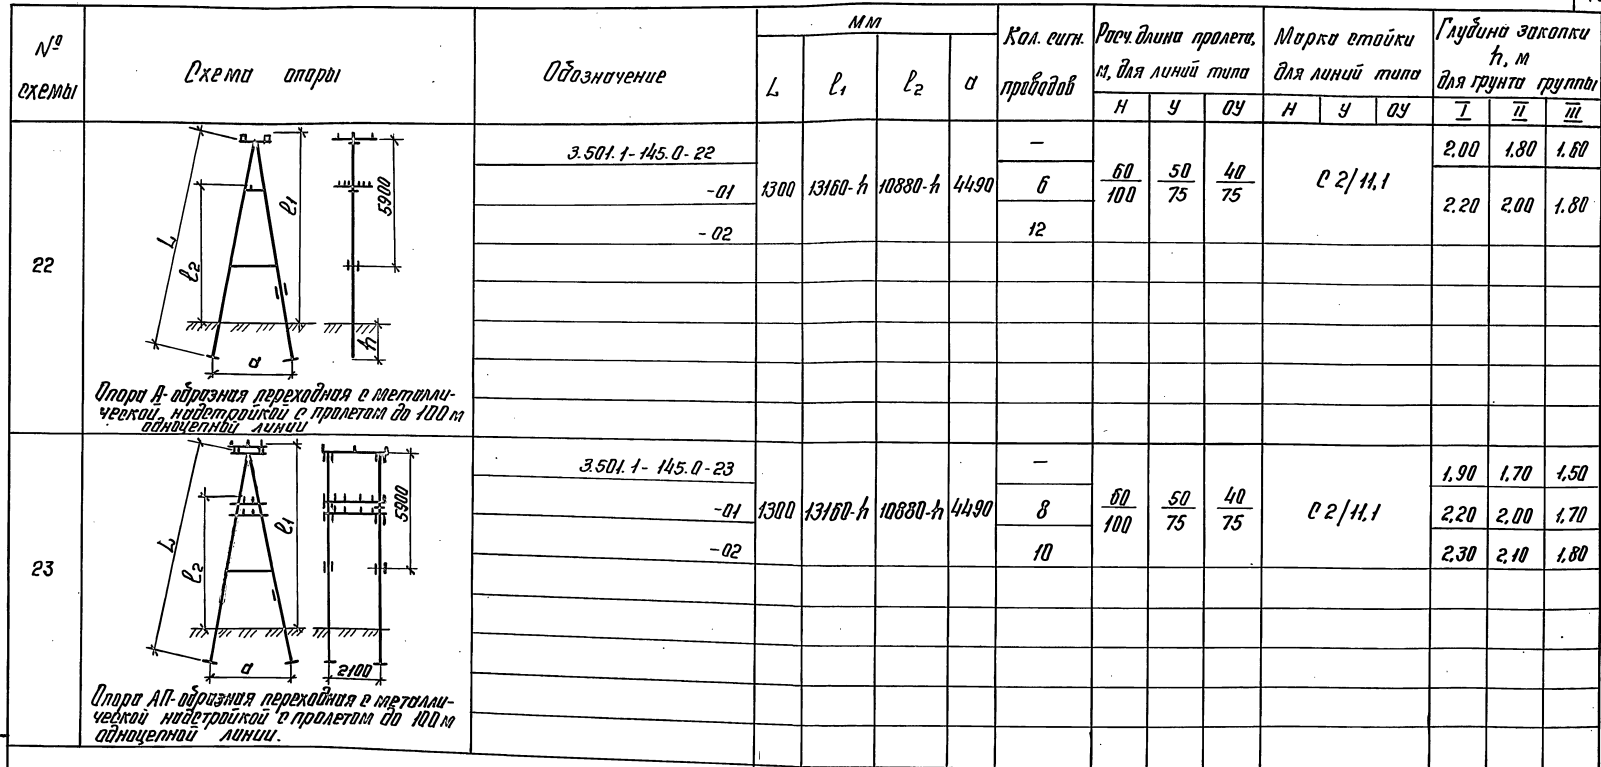 № схемы
Схема опоры
Обозначение
мм
L
l1
l2
а
Кол. сигн.
проводов
Расч. длина пролета,
м, для линий типа
Н У ОУ
Марка стойки
для линий типа
Н У ОУ
Глубина закопки
h, м
для грунта группы
I II III
22
L
l2
l1
а
5900
h
Опора А-образная переходная с металли-
ческой надстройкой с пролетом до 100 м
одноцепной линии
3.501.1-145.0-22
-01
-02
1300 13160-h 10880-h 4490
—
6
12
60/100 50/75 40/75
С 2/11,1
2,00 1,80 1,60
2,20 2,00 1,80
23
L
l2
l1
а
5900
2100
Опора АП-образная переходная с металли-
ческой надстройкой с пролетом до 100 м
одноцепной линии.
3.501.1-145.0-23
-01
-02
1300 13160-h 10880-h 4490
—
8
10
60/100 50/75 40/75
С 2/11,1
1,90 1,70 1,50
2,20 2,00 1,70
2,30 2,10 1,80